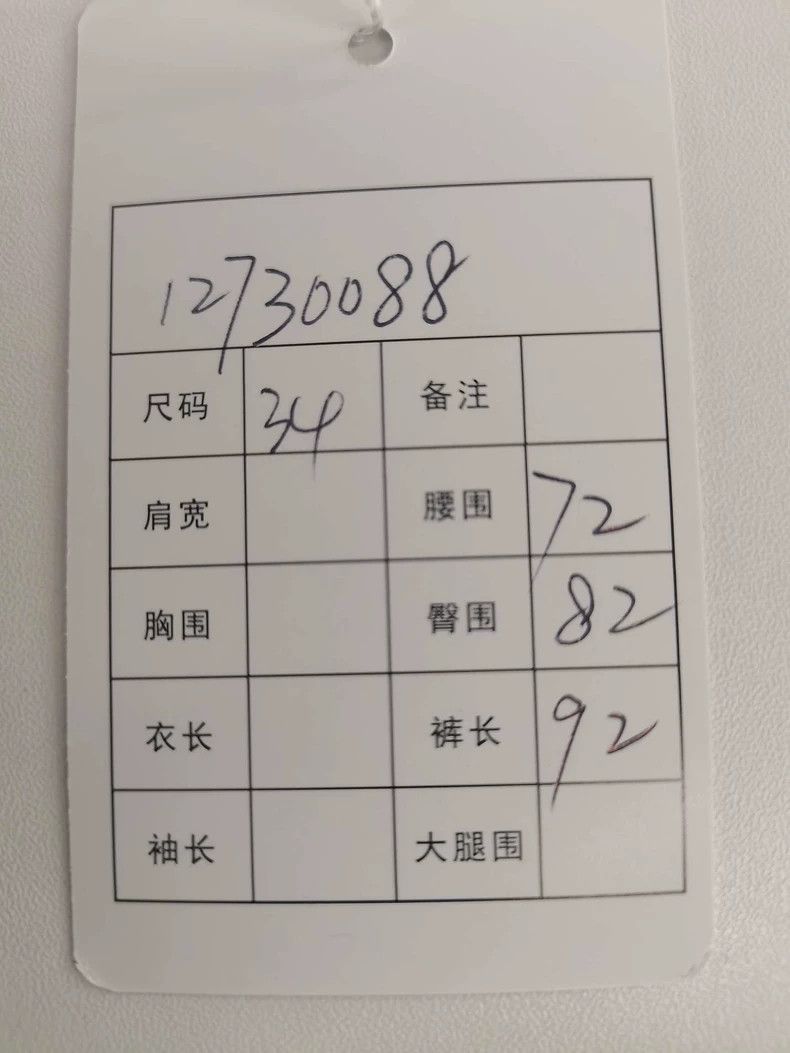 12730088
尺码 34 备注
肩宽 腰围 72
胸围 臀围 82
衣长 裤长 92
袖长 大腿围